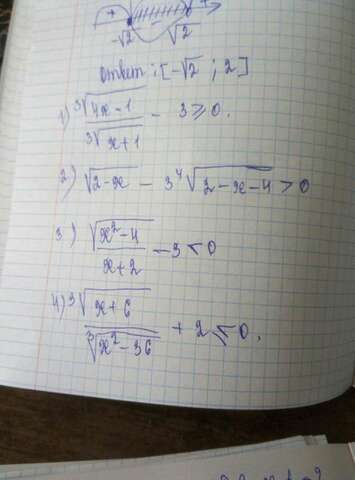 + +
-√2 √2
ответ: [-√2 ; 2]
1) ∛(4x-1) / ∛(x+1) - 3 ≥ 0.
2) √(2-x) - 3 ⁴√(2-x-4) > 0
3) √(x²-4) / (x+2) - 3 < 0
4) ∛(x+6) / ∛(x²-36) + 2 ≤ 0.